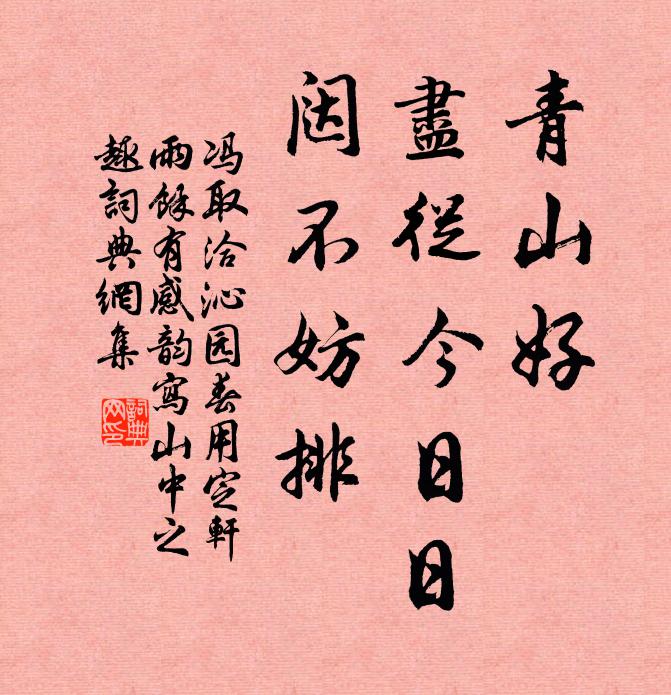 青山好
盡從今日日
闼不妨排
冯取洽沁园春用定軒
雨餘有感韵寫山中之
趣詞典網集
詞典
网印